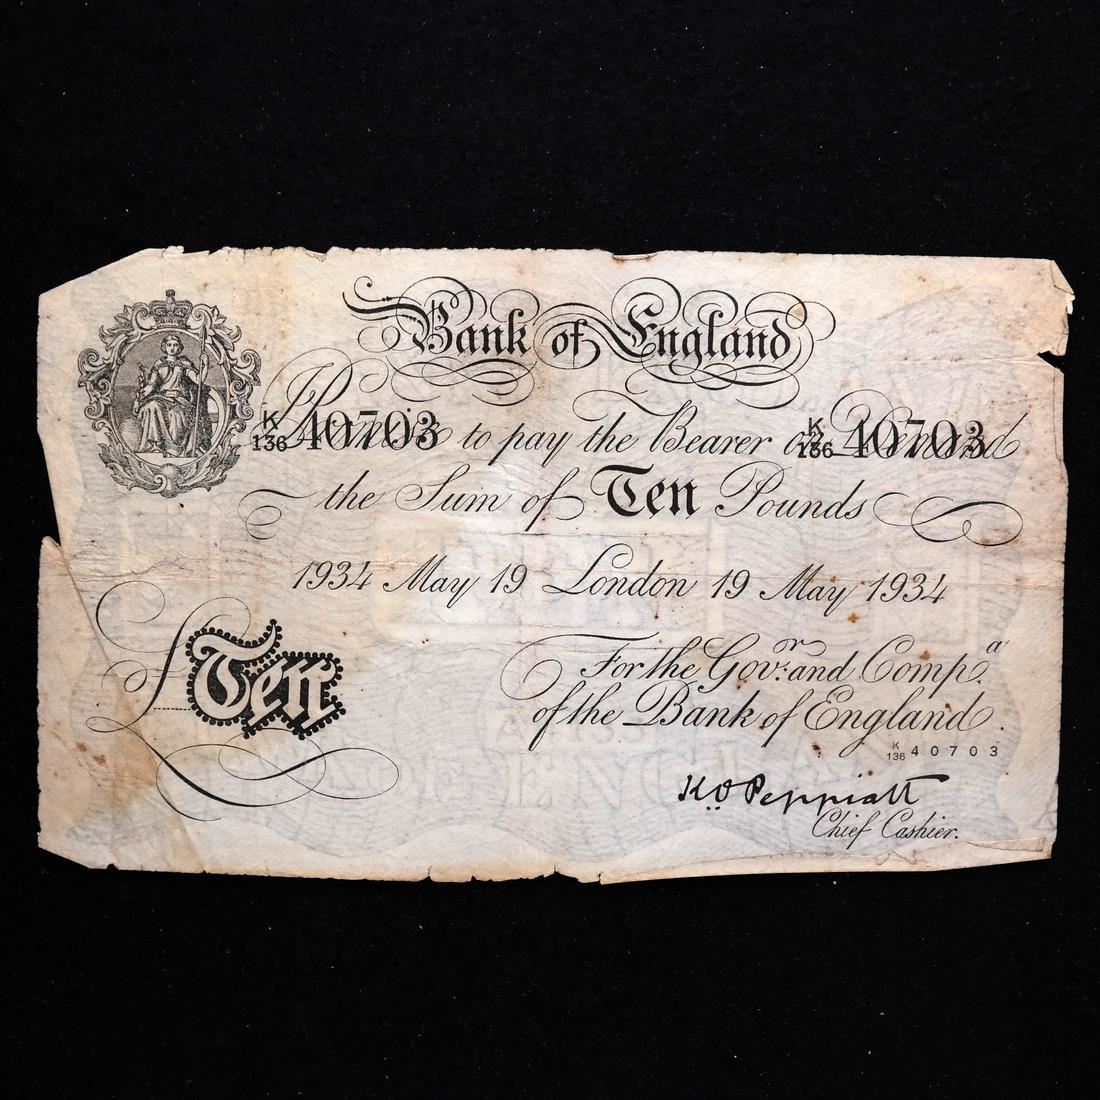 Bank of England
K
136 40703 Promise to pay the Bearer on Demand K
136 40703
the Sum of Ten Pounds
1934 May 19 London 19 May 1934
£Ten
For the Govʳ: and Compᵃ.
of the Bank of England.
K
136 40703
K.O. Peppiatt
Chief Cashier.